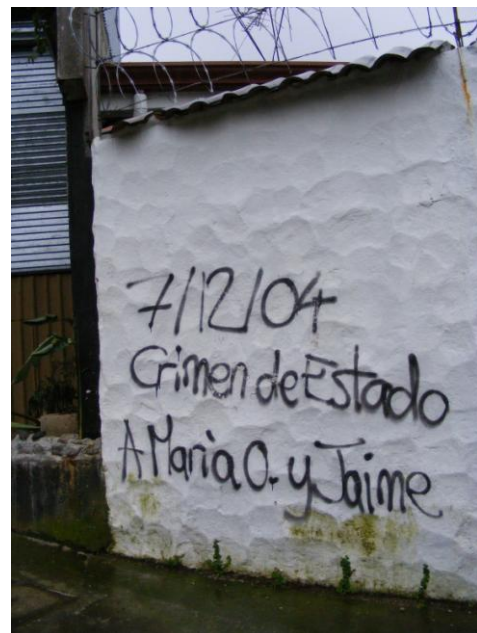 7/12/04
Crimen de Estado
A Maria O. y Jaime